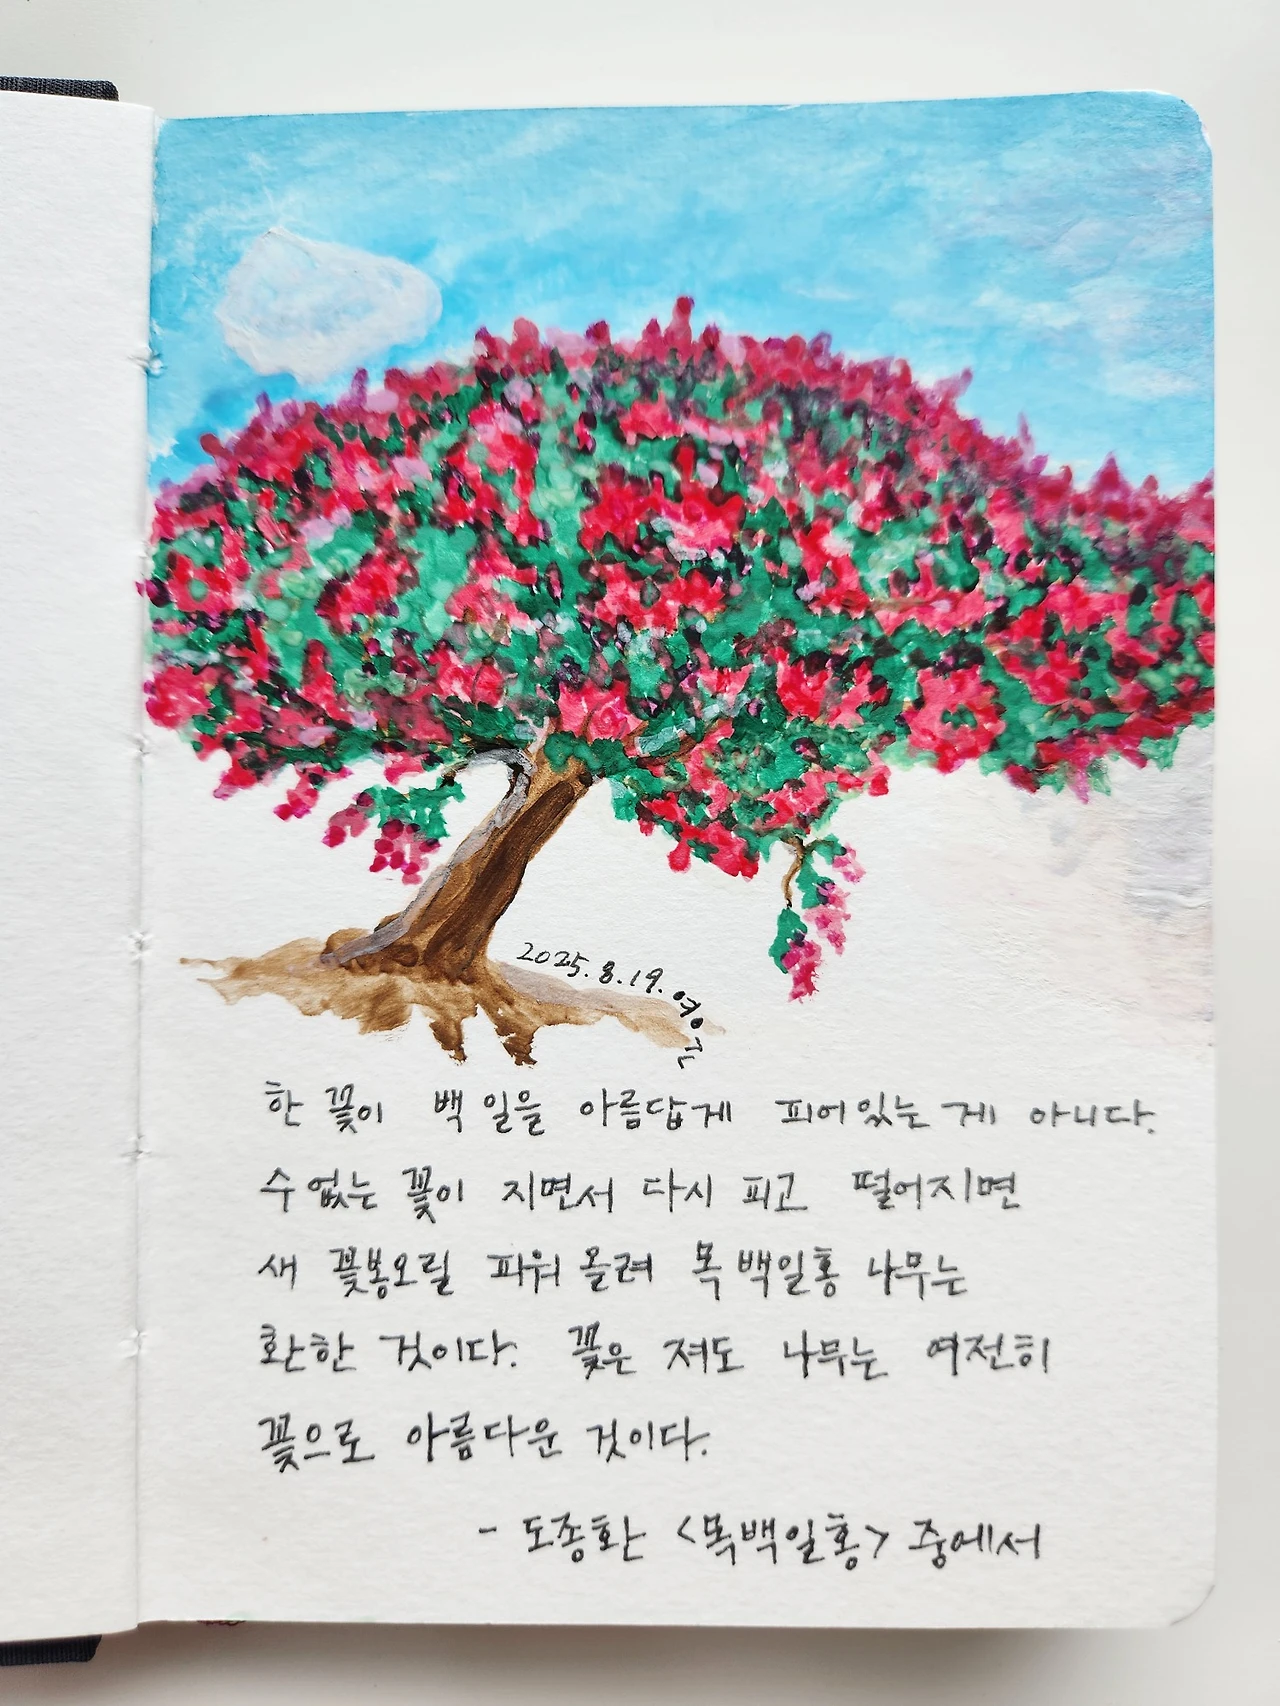 2025.8.19. 영
한 꽃이 백일을 아름답게 피어있는 게 아니다.
수없는 꽃이 지면서 다시 피고 떨어지면
새 꽃봉오릴 피워 올려 목백일홍 나무는
환한 것이다. 꽃은 져도 나무는 여전히
꽃으로 아름다운 것이다.
- 도종환 <목백일홍> 중에서